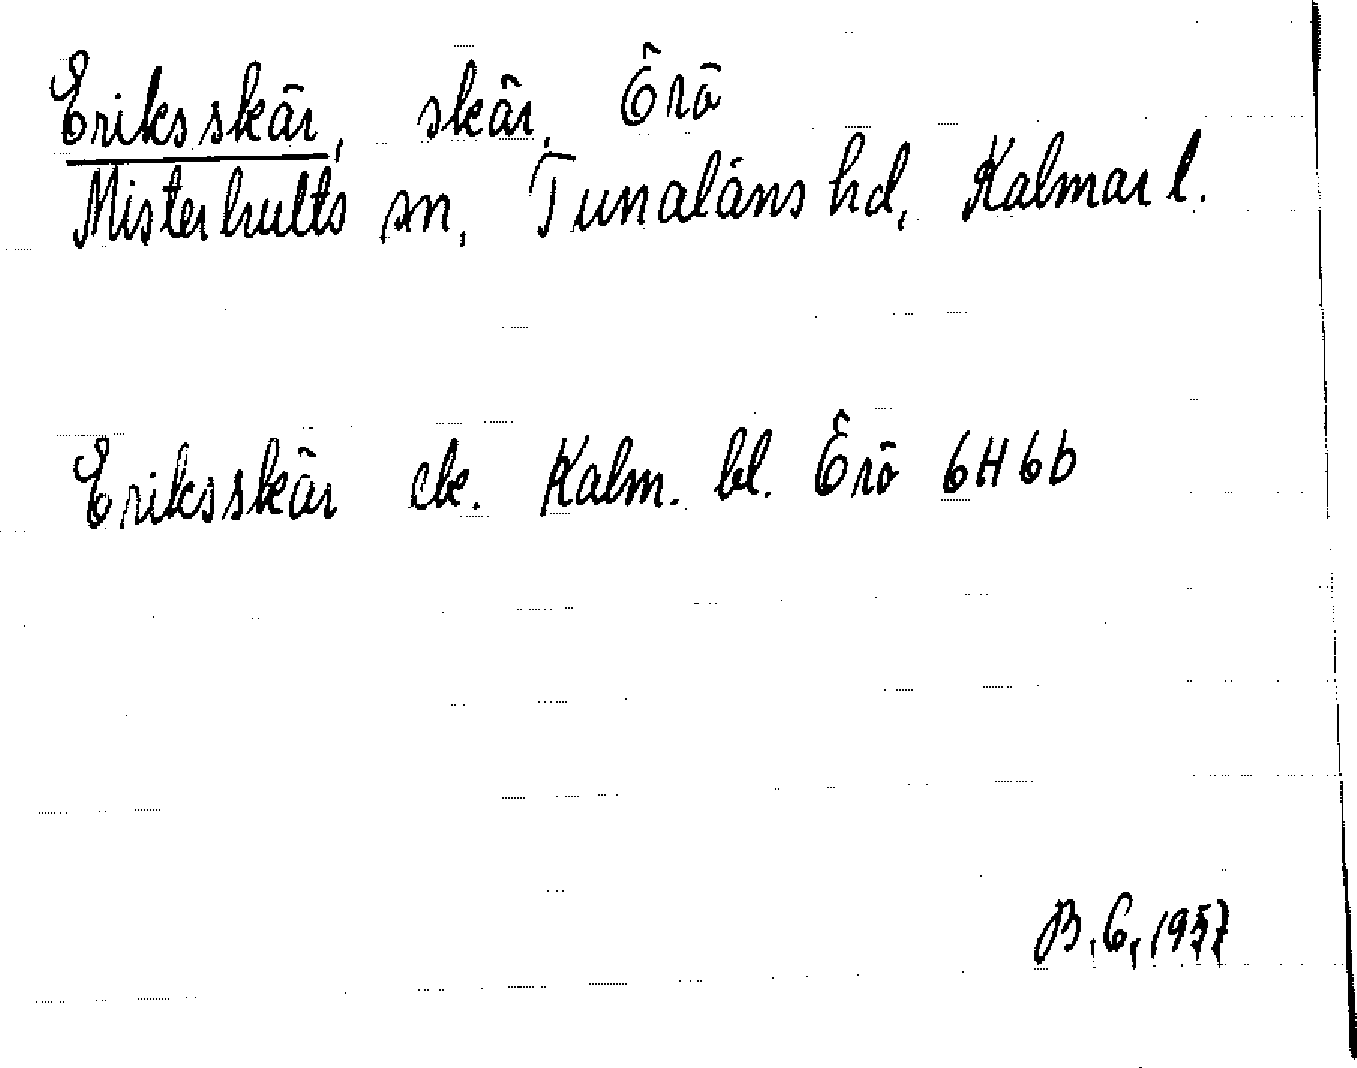 Eriksskär, skär, Örö
Misterhults sn, Tunaläns hd, Kalmar l.
Eriksskär ek. Kalm. bl. Örö 6H6b
B.C, 1957